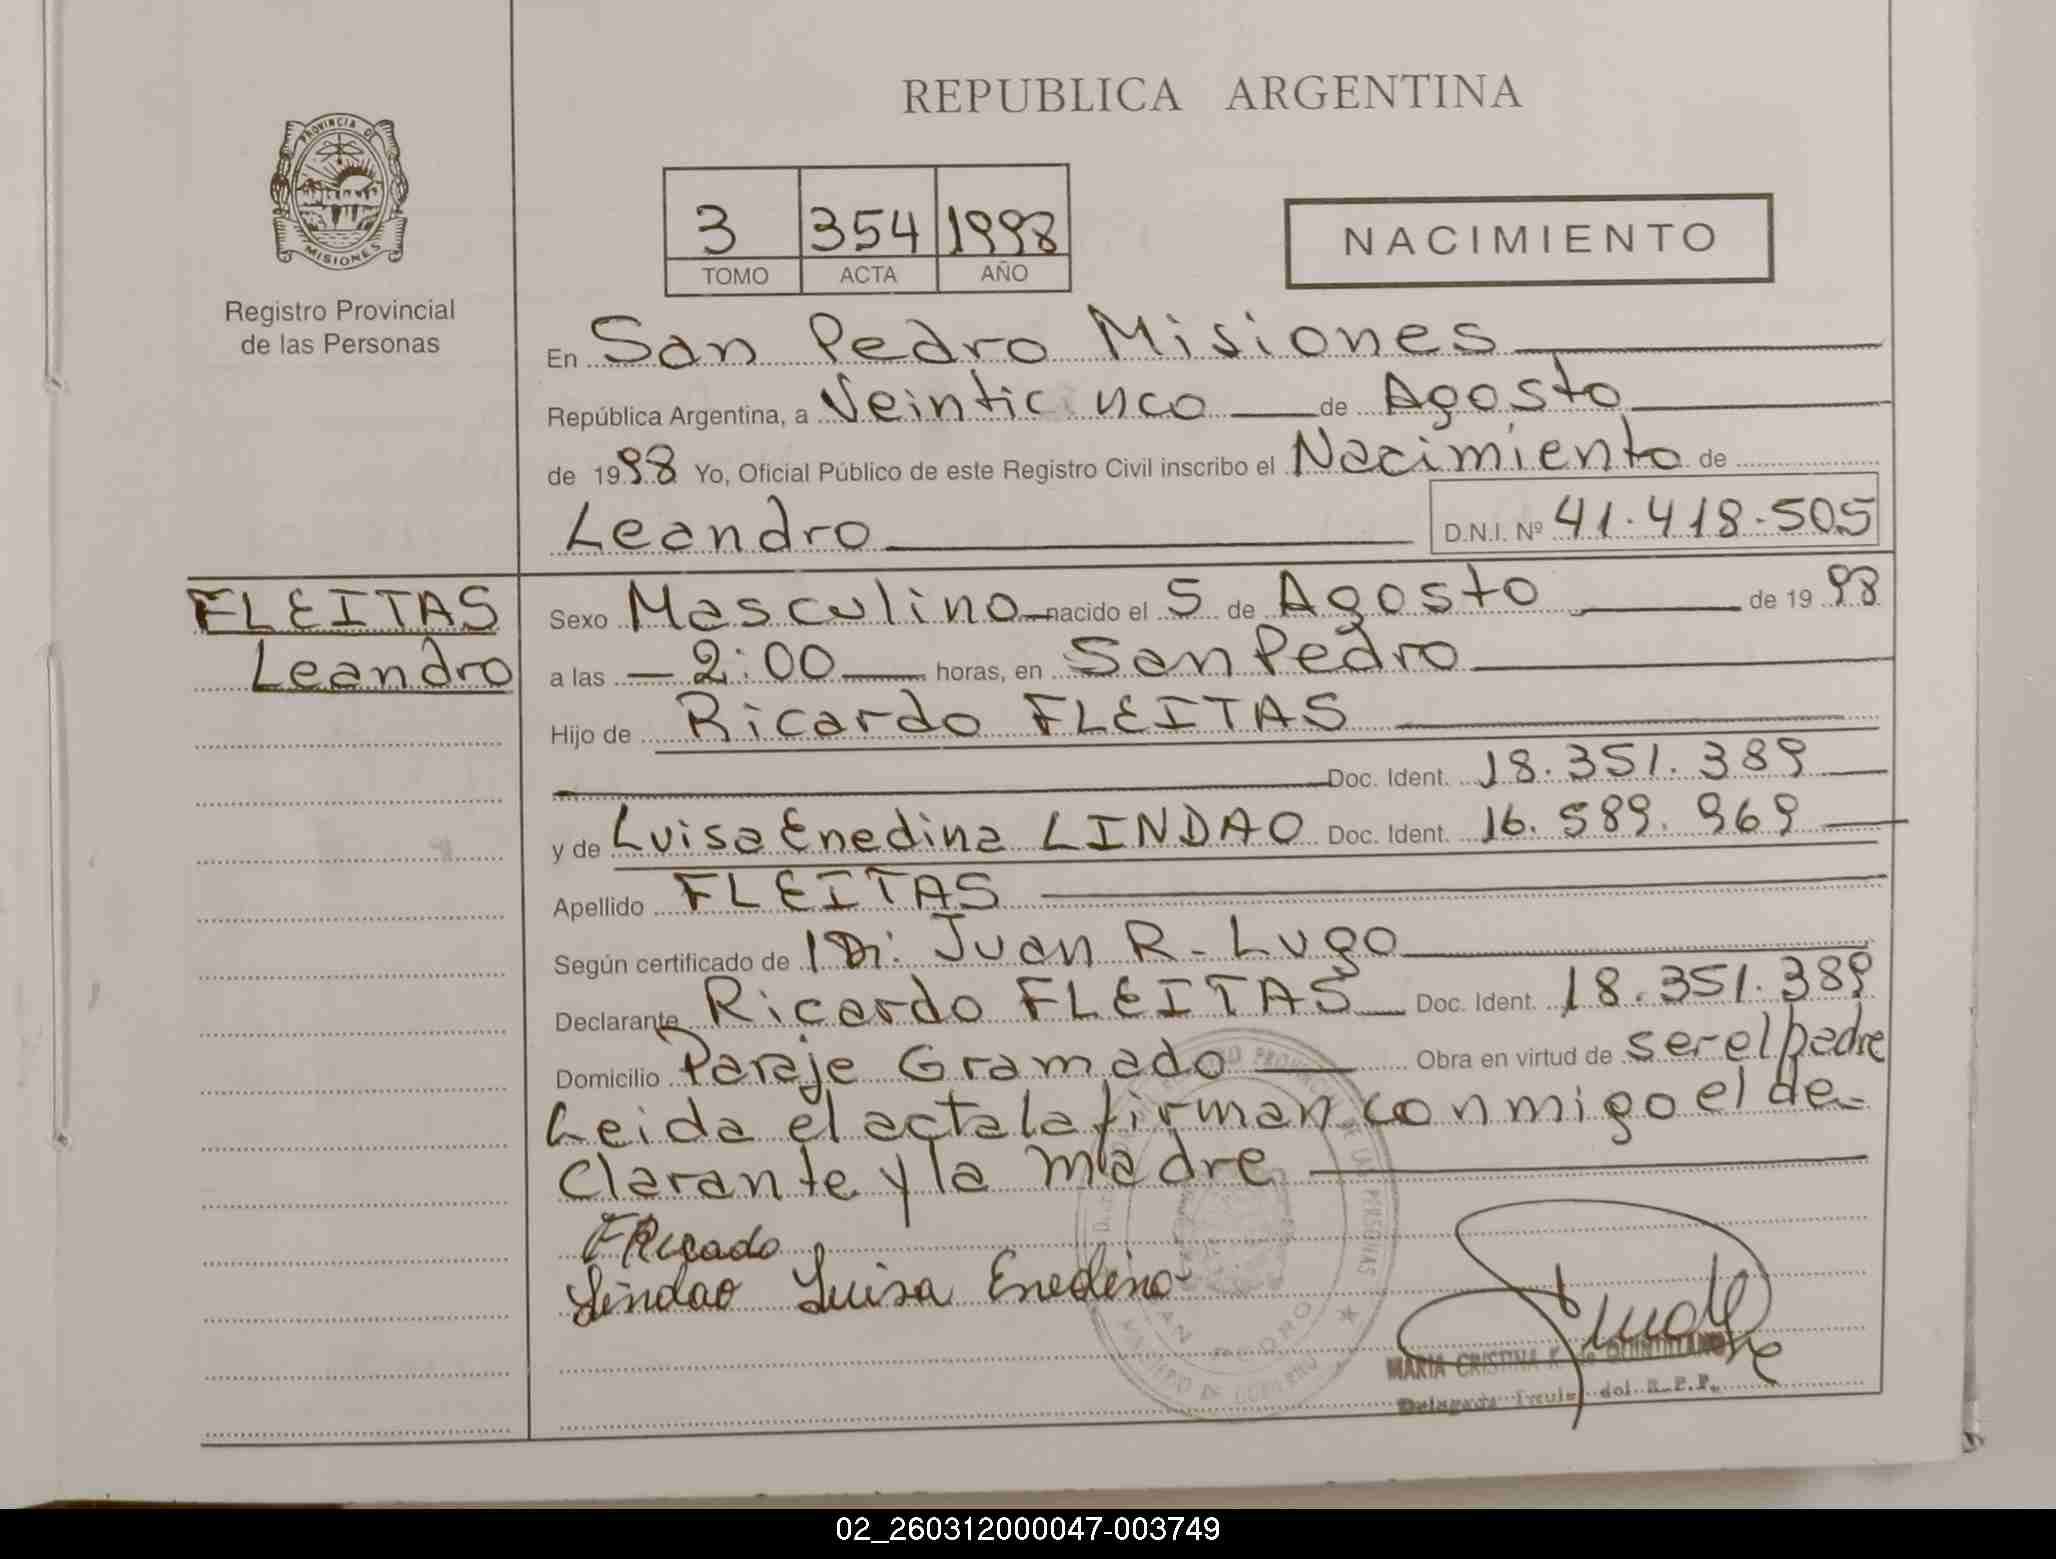 REPUBLICA ARGENTINA
PROVINCIA DE
MISIONES
Registro Provincial
de las Personas
3 354 1998
TOMO ACTA AÑO
NACIMIENTO
En San Pedro Misiones
República Argentina, a Veinticinco de Agosto
de 1998 Yo, Oficial Público de este Registro Civil inscribo el Nacimiento de
Leandro D.N.I. Nº 41.418.505
FLEITAS
Leandro
Sexo Masculino nacido el 5 de Agosto de 1998
a las 2:00 horas, en San Pedro
Hijo de Ricardo FLEITAS
Doc. Ident. 18.351.389
y de Luisa Enedina LINDAO Doc. Ident. 16.589.969
Apellido FLEITAS
Según certificado de Juan R. Lugo
Declarante Ricardo FLEITAS Doc. Ident. 18.351.389
Domicilio Paraje Gramado Obra en virtud de ser el padre
Leida el acta la firman conmigo el de-
clarante y la madre
Lindao Luisa Enedina
PROVINCIAL DE LAS PERSONAS
SAN PEDRO
MARIA CRISTINA K. de QUINTILIANO
Delegada Titular del R.P.P.
02_260312000047-003749